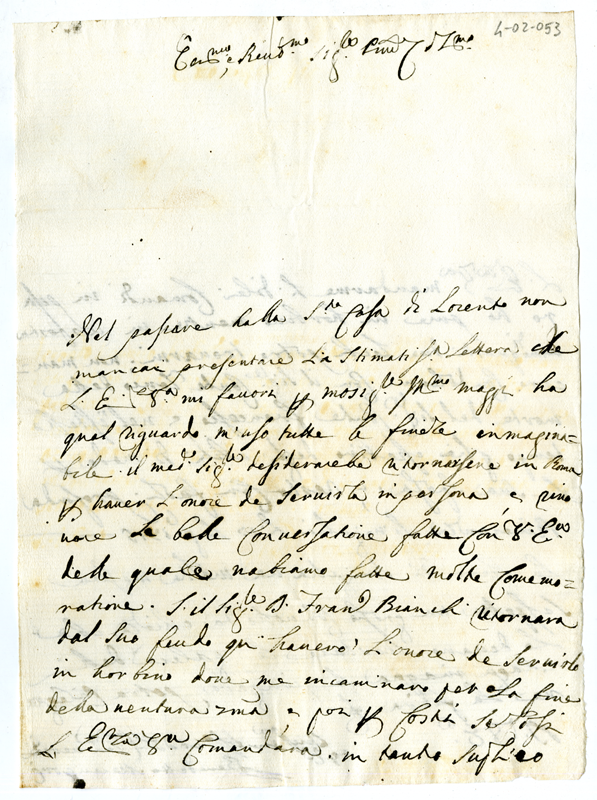 4-02-053
Em.mo, e Reud.mo Sig.re
Nel passare dalla S.ta Casa di Lorento non
mancai presentare La Stimatissa Lettera che
L. E. V.ra mi favorì mosig.re maggi ha
qual riguardo m'uso tutte le finezze inmagina=
bile. il med. Sig.re desiderarebe ritornassene in Roma
haver L'onore de Seruirla in persona, e rino
uare Le belle Conversatione fatte Con V. E.
delle quale nabiamo fatte molte Comemo=
ratione. S. il Sig.re D. Fran.o Bianchi ritornara
dal Suo feudo qui hauero L'onore de Seruirlo
in horbino doue me incaminaro per La fine
della uentura, e poi Costì Se
L. E. V.ra Comandara. in tanto Suplico